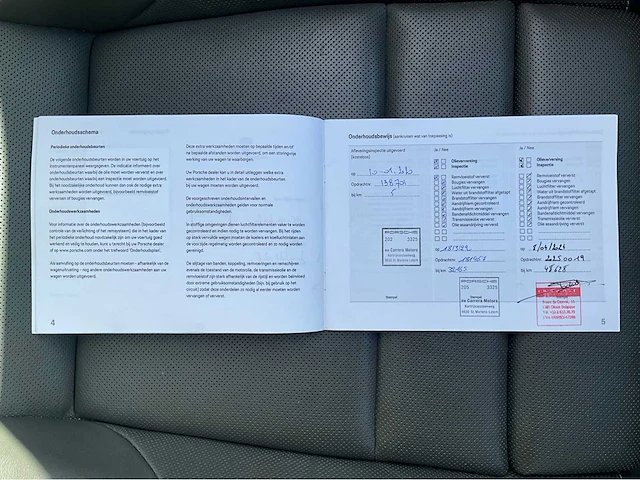 Onderhoudsschema
Periodieke onderhoudsbeurten
De volgende onderhoudsbeurten worden in uw voertuig op het
instrumentenpaneel weergegeven. De indicatie informeert over
onderhoudsbeurten waarbij de olie moet worden ververst en over
onderhoudsbeurten waarbij een inspectie moet worden uitgevoerd.
Bij het noodzakelijke onderhoud kunnen dan ook de nodige extra
werkzaamheden worden uitgevoerd, bijvoorbeeld remvloeistof
verversen of bougies vervangen.
Onderhoudswerkzaamheden
Voor informatie over onderhoudswerkzaamheden (bijvoorbeeld
controle van de verlichting of het remsysteem) die in het kader van
het periodieke onderhoud noodzakelijk zijn om uw voertuig goed
werkend en veilig te houden, kunt u terecht bij uw Porsche dealer
of op www.porsche.com onder het trefwoord 'Onderhoudsplan'.
Als aanvulling op de onderhoudsbeurten moeten – afhankelijk van de
wagenuitrusting – nog andere onderhoudswerkzaamheden aan uw
wagen worden uitgevoerd.
4
Deze extra werkzaamheden moeten op bepaalde tijden en tot
op bepaalde afstanden worden uitgevoerd, om een storingsvrije
werking van uw wagen te waarborgen.
Uw Porsche dealer kan u in detail uitleggen welke extra
werkzaamheden in het kader van de onderhoudsbeurten
bij uw wagen moeten worden uitgevoerd.
De voorgeschreven onderhoudsintervallen en
onderhoudswerkzaamheden gelden voor normale
gebruiksomstandigheden.
In stoffige omgevingen dienen luchtfilterelementen vaker te worden
gecontroleerd en indien nodig te worden vervangen. Bij het rijden
op sterk vervuilde wegen moeten de koelers en koelluchtinlaten aan
de voorzijde regelmatig worden gecontroleerd en zo nodig worden
gereinigd.
De slijtage van banden, koppeling, remvoeringen en remschijven
evenals de toestand van de motorolie, de transmissieolie en de
remvloeistof zijn sterk afhankelijk van de rijstijl en worden beïnvloed
door extreme gebruiksomstandigheden (bijv. bij gebruik op het
circuit) zodat deze onderdelen zo nodig al eerder moeten worden
vervangen of ververst.
Onderhoudsbewijs (aankruisen wat van toepassing is)
Afleveringsinspectie uitgevoerd
(kilometers)
op
Opdrachtnr.
bij km
PORSCHE
202 3325
Stempel
Ja / Nee
Olieverversing
Inspectie
Remvloeistof ververst
Bougies vervangen
Luchtfilter vervangen
Water uit brandstoffilter afgetapt
Brandstoffilter vervangen
Aandrijfriem gecontroleerd
Aandrijfriem vervangen
Bandenafdichtmiddel vervangen
Transmissieolie ververst
Olie asaandrijving ververst
op
Opdrachtnr. 181467
bij km 32465
PORSCHE
Stempel
Ja / Nee
Olieverversing
Inspectie
Remvloeistof ververst
Bougies vervangen
Luchtfilter vervangen
Water uit brandstoffilter afgetapt
Brandstoffilter vervangen
Aandrijfriem gecontroleerd
Aandrijfriem vervangen
Bandenafdichtmiddel vervangen
Transmissieolie ververst
Olie asaandrijving ververst
op 8/04/2021
Opdrachtnr. 20250019
bij km 48628
5